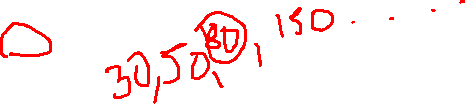 30, 50, 80, , 150 . . . . .